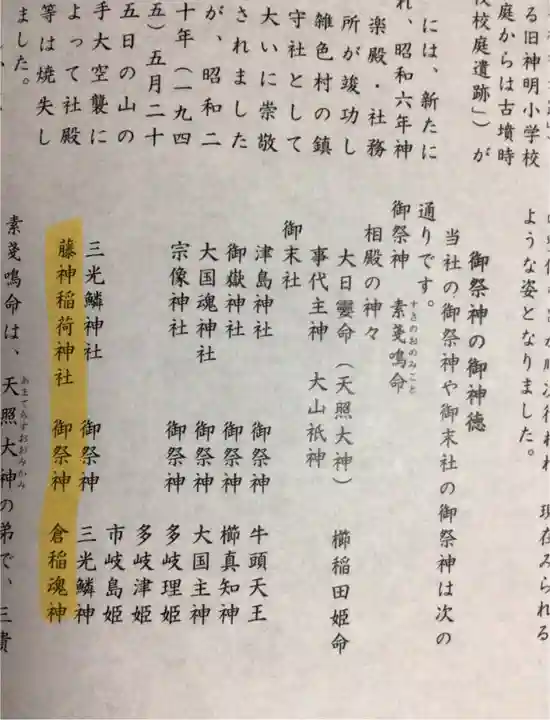 る旧神明小学校
庭からは古墳時
校校庭遺跡」）が
には、新たに
れ、昭和六年神
楽殿・社務
所が竣功し
雑色村の鎮
守社として
大いに崇敬
されました
が、昭和二
十年（一九四
五）五月二十
五日の山の
手大空襲に
よって社殿
等は焼失し
ました。
現在みられる
ような姿となりました。
御祭神の御神徳
当社の御祭神や御末社の御祭神は次の
通りです。
御祭神 素戔鳴命
すさのおのみこと
相殿の神々
大日孁命（天照大神） 櫛稲田姫命
事代主神 大山祇神
御末社
津島神社 御祭神 牛頭天王
御嶽神社 御祭神 櫛真知神
大国魂神社 御祭神 大国主神
宗像神社 御祭神 多岐理姫
多岐津姫
市岐島姫
三光鱗神社 御祭神 三光鱗神
藤神稲荷神社 御祭神 倉稲魂神
素戔鳴命は、天照大神の弟で、三貴
あまてらすおおみかみ